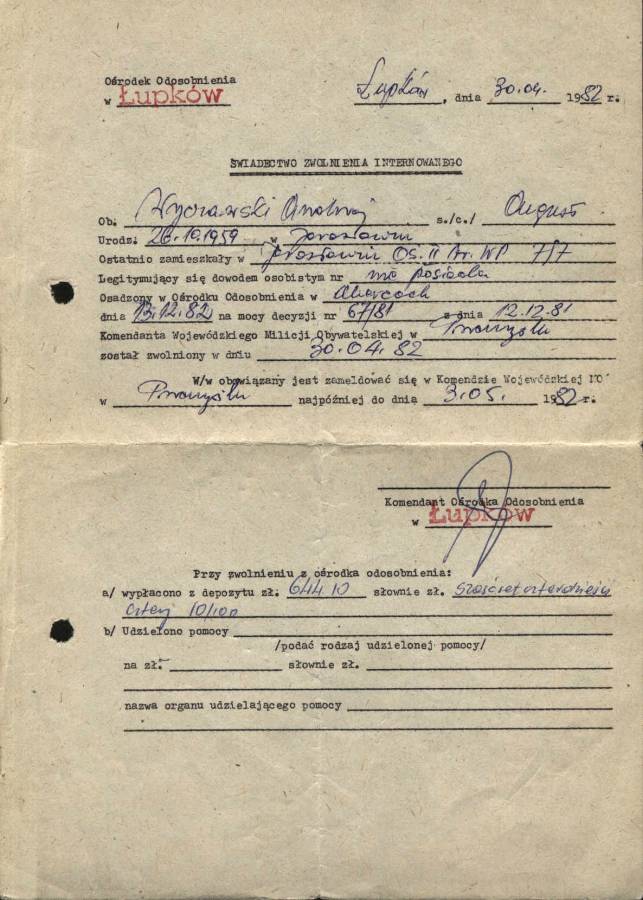 Ośrodek Odosobnienia
w Łupków
Łupków, dnia 30.04. 1982 r.
ŚWIADECTWO ZWOLNIENIA INTERNOWANEGO
Ob. Andrzej s./c./ August
Urodz. 26.10.1959 w Jarosławiu
Ostatnio zamieszkały w Jarosławiu Oś. II Ar. WP 7/7
Legitymujący się dowodem osobistym nr nie posiada
Osadzony w Ośrodku Odosobnienia w
dnia 13.12.82 na mocy decyzji nr 67/81 z dnia 12.12.81
Komendanta Wojewódzkiego Milicji Obywatelskiej w Przemyślu
został zwolniony w dniu 30.04.82
W/w obowiązany jest zameldować się w Komendzie Wojewódzkiej MO
w Przemyślu najpóźniej do dnia 3.05. 1982 r.
Komendant Ośrodka Odosobnienia
w Łupków
Przy zwolnieniu z ośrodka odosobnienia:
a/ wypłacono z depozytu zł. 644 10 słownie zł. sześćset czterdzieści
cztery 10/100
b/ Udzielono pomocy
/podać rodzaj udzielonej pomocy/
na zł. słownie zł.
nazwa organu udzielającego pomocy